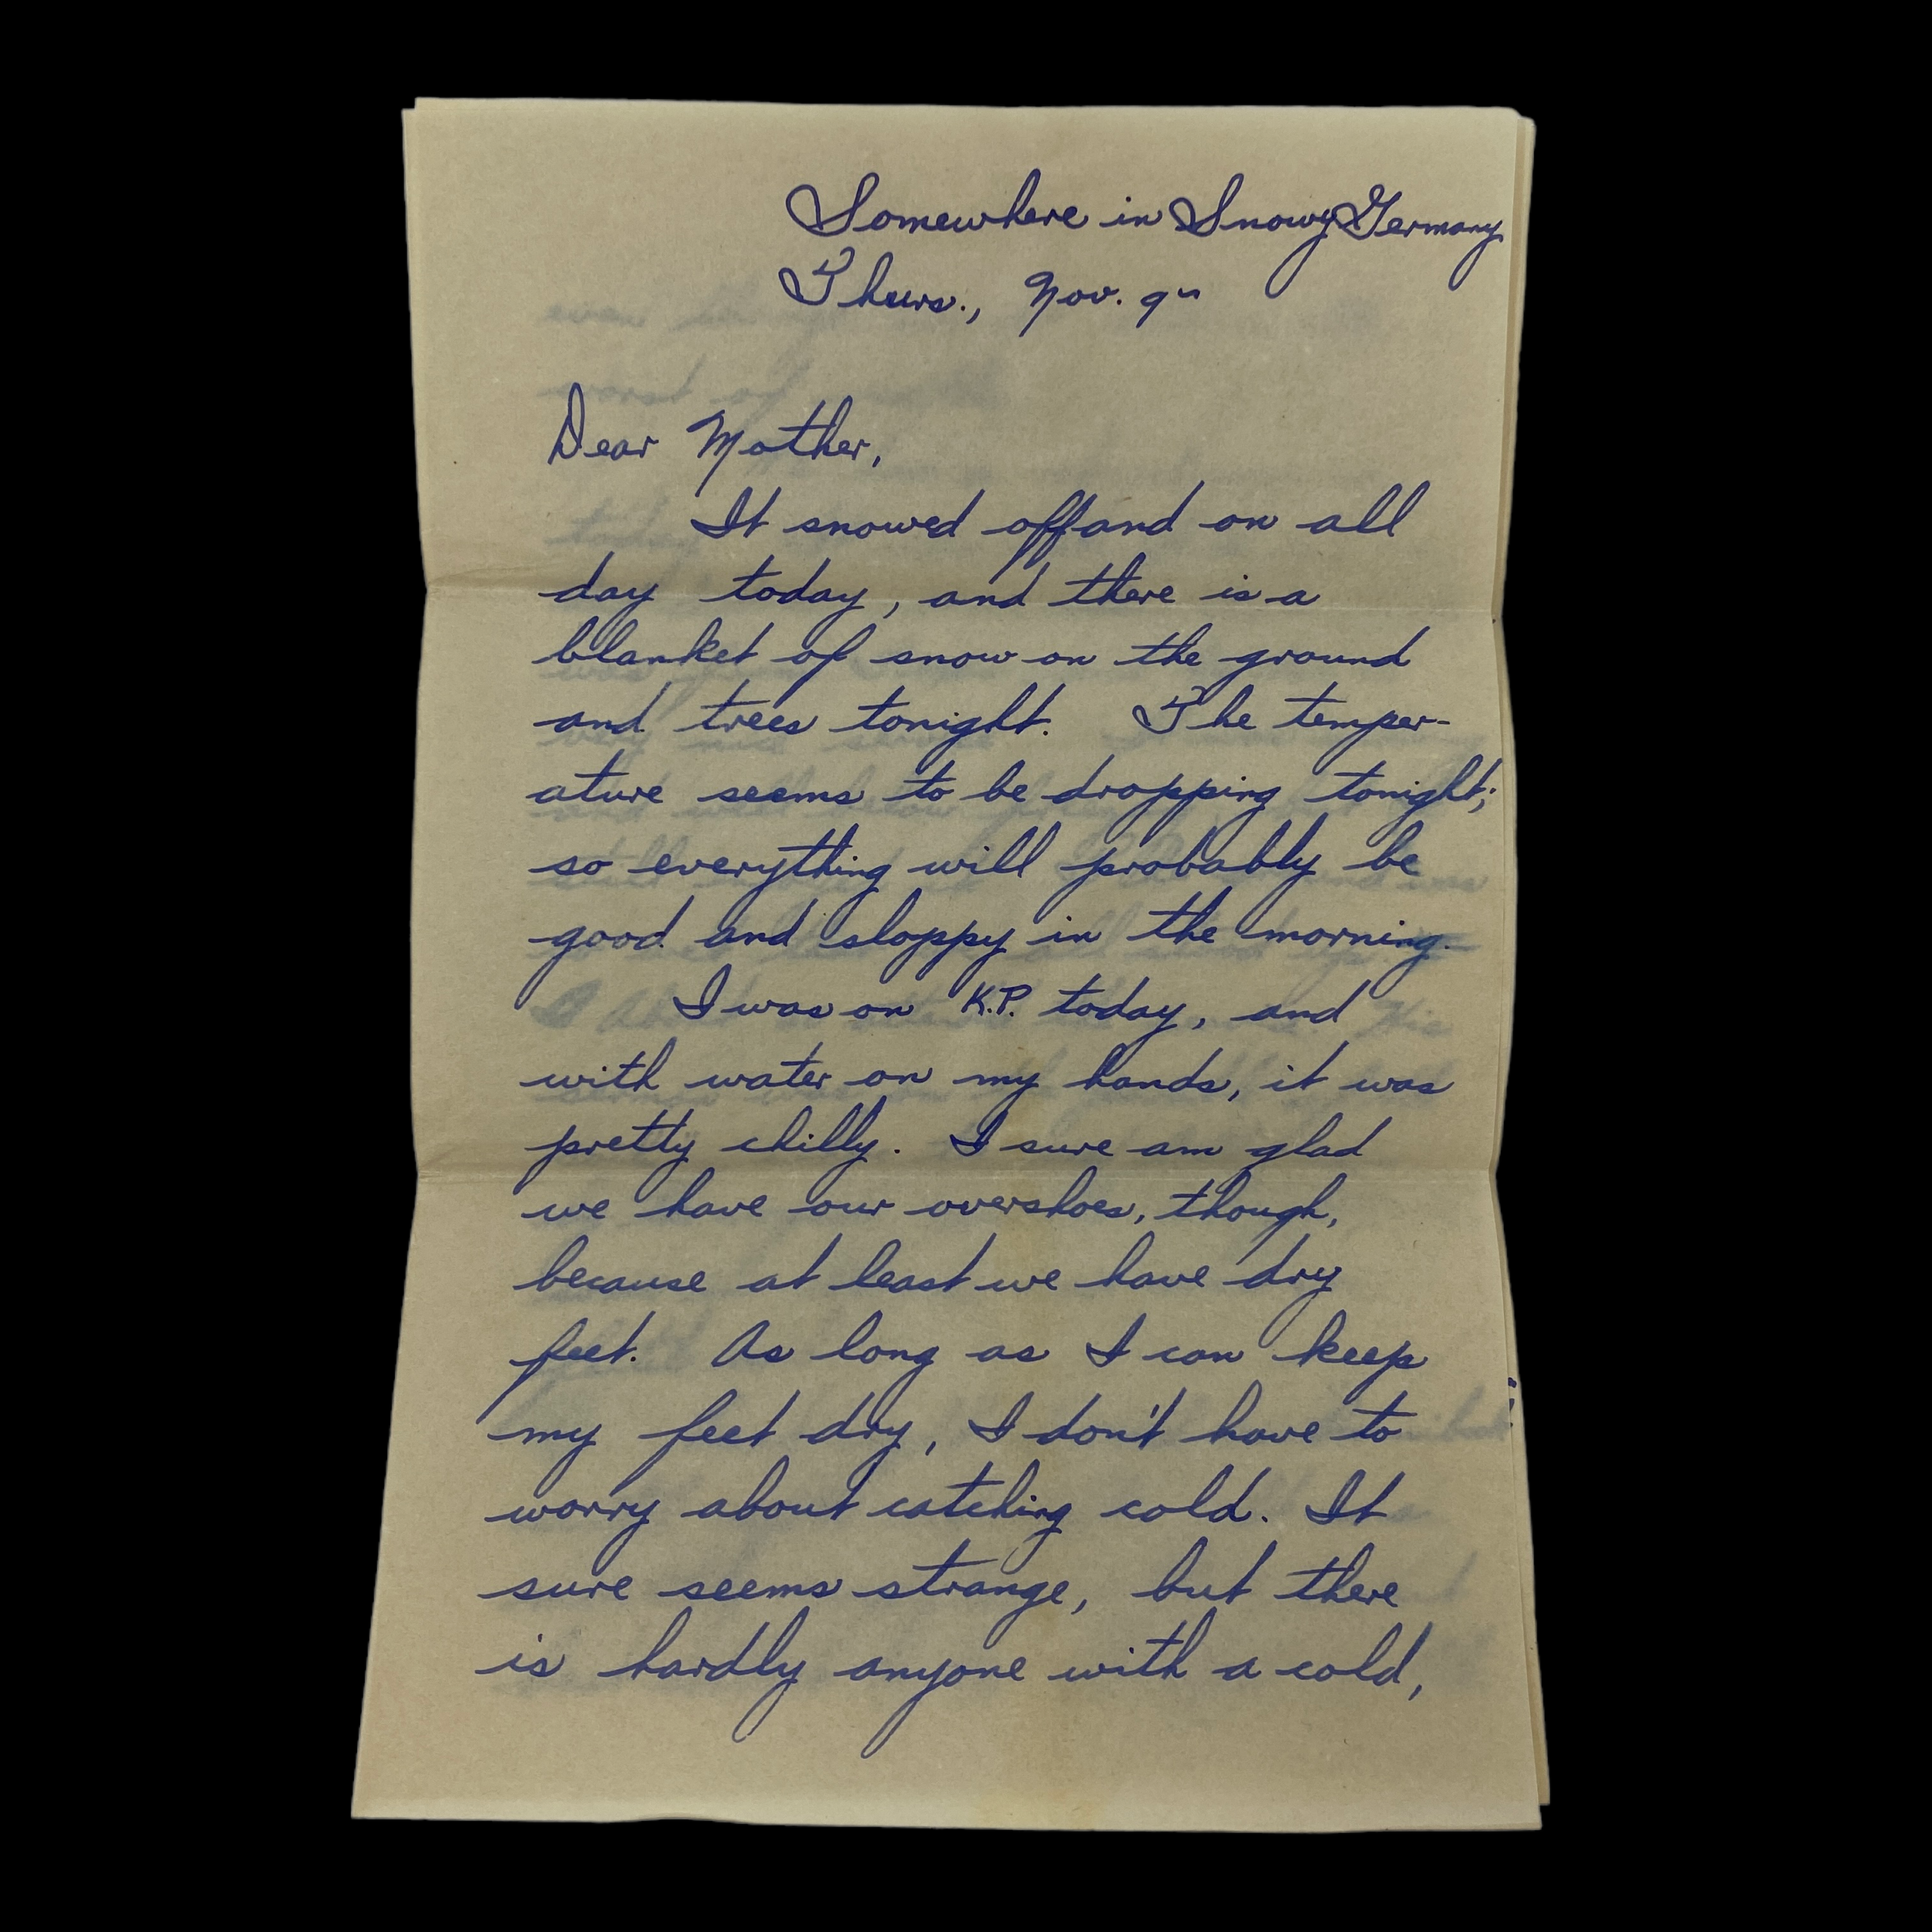 Somewhere in Snowy Germany
Thurs., Nov. 9
Dear Mother,
It snowed off and on all
day today, and there is a
blanket of snow on the ground
and trees tonight. The temper-
ature seems to be dropping tonight;
so everything will probably be
good and sloppy in the morning.
I was on K.P. today, and
with water on my hands, it was
pretty chilly. I sure am glad
we have our overshoes, though,
because at least we have dry
feet. As long as I can keep
my feet dry, I don't have to
worry about catching cold. It
sure seems strange, but there
is hardly anyone with a cold,